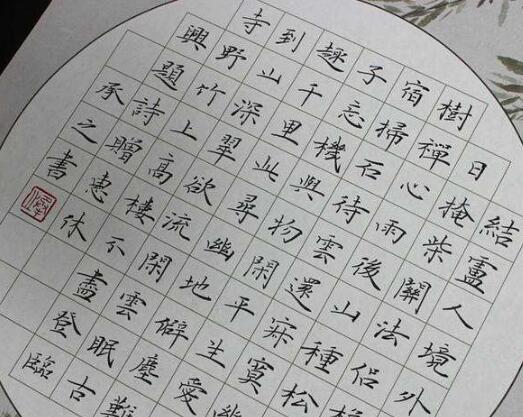 結廬人境外
日掩柴關法侶
樹禪心雨後山種松
宿掃石待雲還寂寞
子忘機與物閒平生愛幽
趣千里此尋幽地僻塵難
到山深翠欲流閑雲眠古
寺野竹上高樓不盡登臨
興題詩贈惠休
承之書